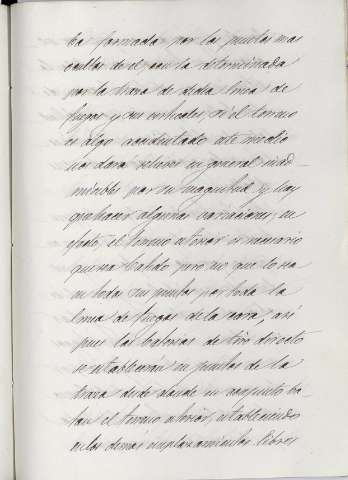 ba formada por los puntos mas
de el con la determinada
por la traza de dicha linea de
fuegos y sus verticales, si el terreno
es algo accidentado este medio
nos dará relieves en general inad-
misibles por su magnitud y hay
que hacer algunas variaciones; en
efecto, el terreno exterior es necesario
que sea batido pero no que lo sea
en todos sus puntos por toda la
linea de fuegos de la cara; asi
pues las baterias de tiro directo
se estableceran en puntos de la
traza desde donde en conjunto ba-
tan el terreno exterior, estableciendo
en los demás emplazamientos libres